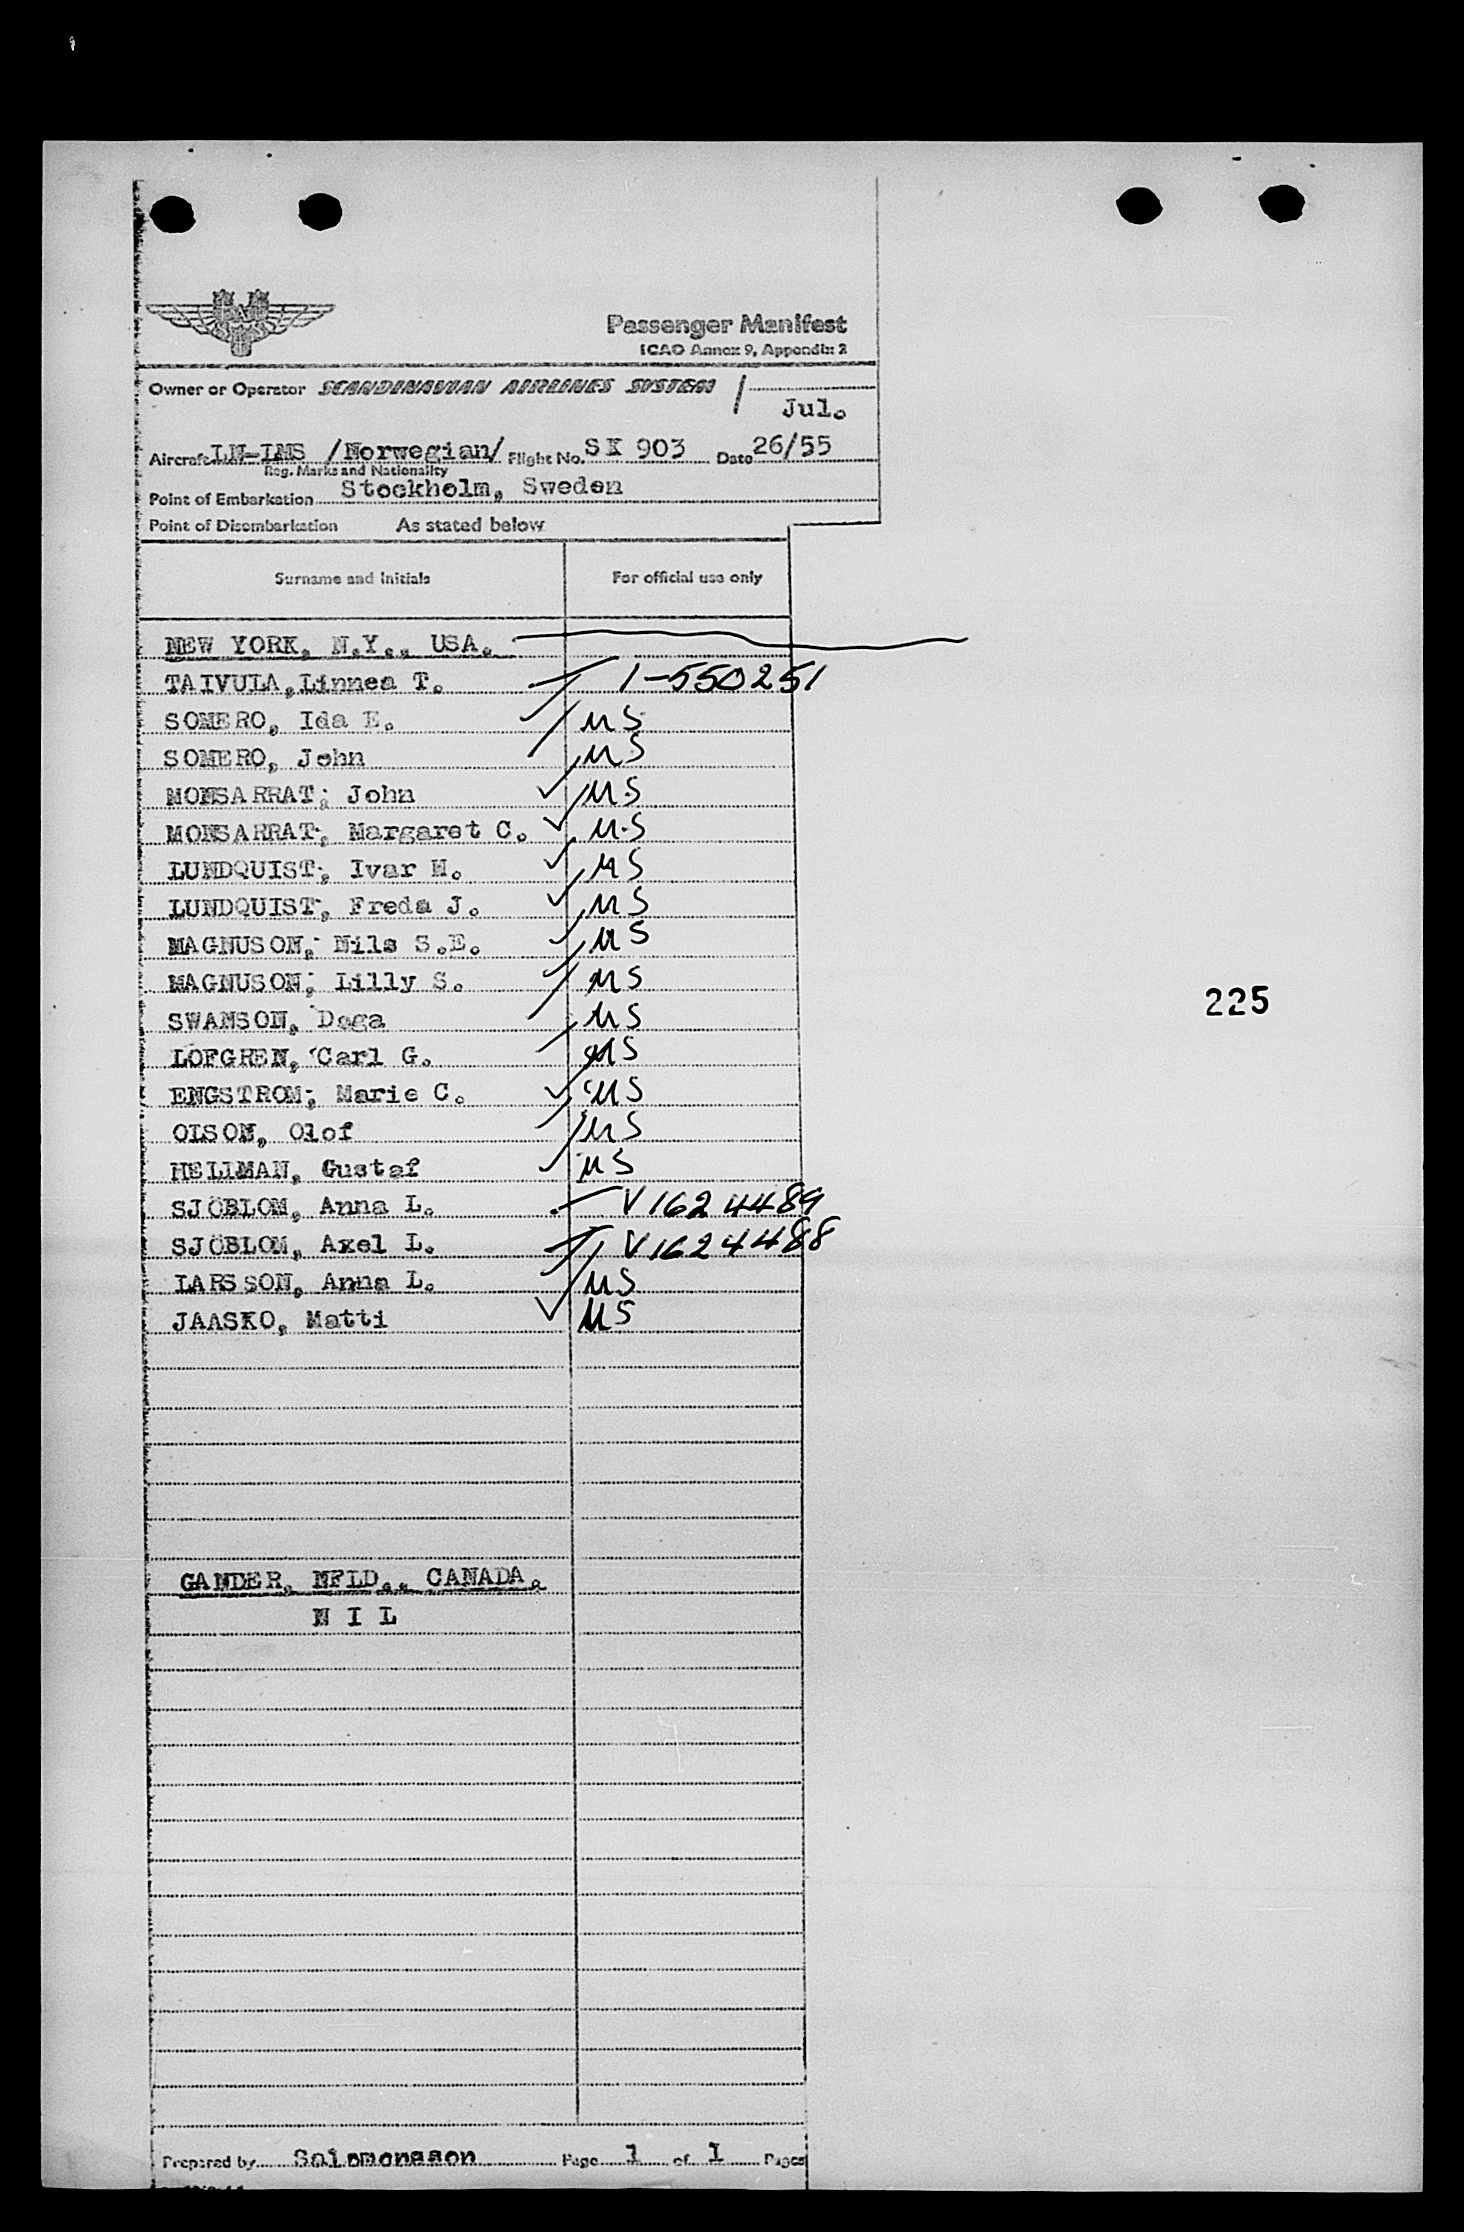 Passenger Manifest
ICAO Annex 9, Appendix 2
Owner or Operator SCANDINAVIAN AIRLINES SYSTEM /
Jul.
Aircraft LN-LMS /Norwegian/ Flight No. SK 903 Date 26/55
Reg. Marks and Nationality
Point of Embarkation Stockholm, Sweden
Point of Disembarkation As stated below
Surname and Initials For official use only
NEW YORK, N.Y., USA.
TAIVULA, Linnea T. 1-550251
SOMERO, Ida E. US
SOMERO, John US
MONSARRAT, John US
MONSARRAT, Margaret C. U.S
LUNDQUIST, Ivar H. US
LUNDQUIST, Freda J. US
MAGNUSON, Nils S.E. US
MAGNUSON, Lilly S. US
SWANSON, Doga US
225
LOFGREN, Carl G. US
ENGSTROM, Marie C. US
OLSON, Olof US
HELLMAN, Gustaf US
SJÖBLOM, Anna L. V1624489
SJÖBLOM, Axel L. V1624488
LARSSON, Anna L. US
JAASKO, Matti US
GANDER, NFLD., CANADA.
N I L
Prepared by Salomonsson Page 1 of 1 Pages